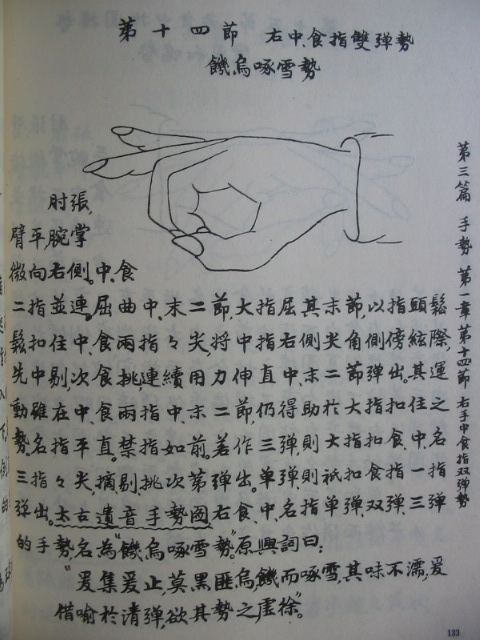 第十四節 右中、食指雙弹勢
饑烏啄雪勢
肘張,
臂平,腕掌
微向右側。中、食
二指並連。屈曲中、末二節,大指屈其末節,以指頭鬆
鬆扣住中、食兩指々尖,将中指右側尖角側傍絃際
先中剔次食挑,連續用力伸直中、末二節弹出。其運
動雖在中、食兩指中、末二節,仍得助於大指扣住之
勢。名指平直。禁指如前。若作三弹,則大指扣食、中、名
三指々尖,摘剔挑次第弹出。单弹,則祇扣食指一指
弹出。太古遺音手勢圖右食、中、名指单弹双弹三弹
的手勢名為“饑烏啄雪勢”。原興詞曰:
“爰集爰止,莫黑匪烏,饑而啄雪,其味不濡,爰
借喻於清弹,欲其勢之虛徐”。
第三篇 手勢 第一章 第十四節 右手中食指双弹勢
133